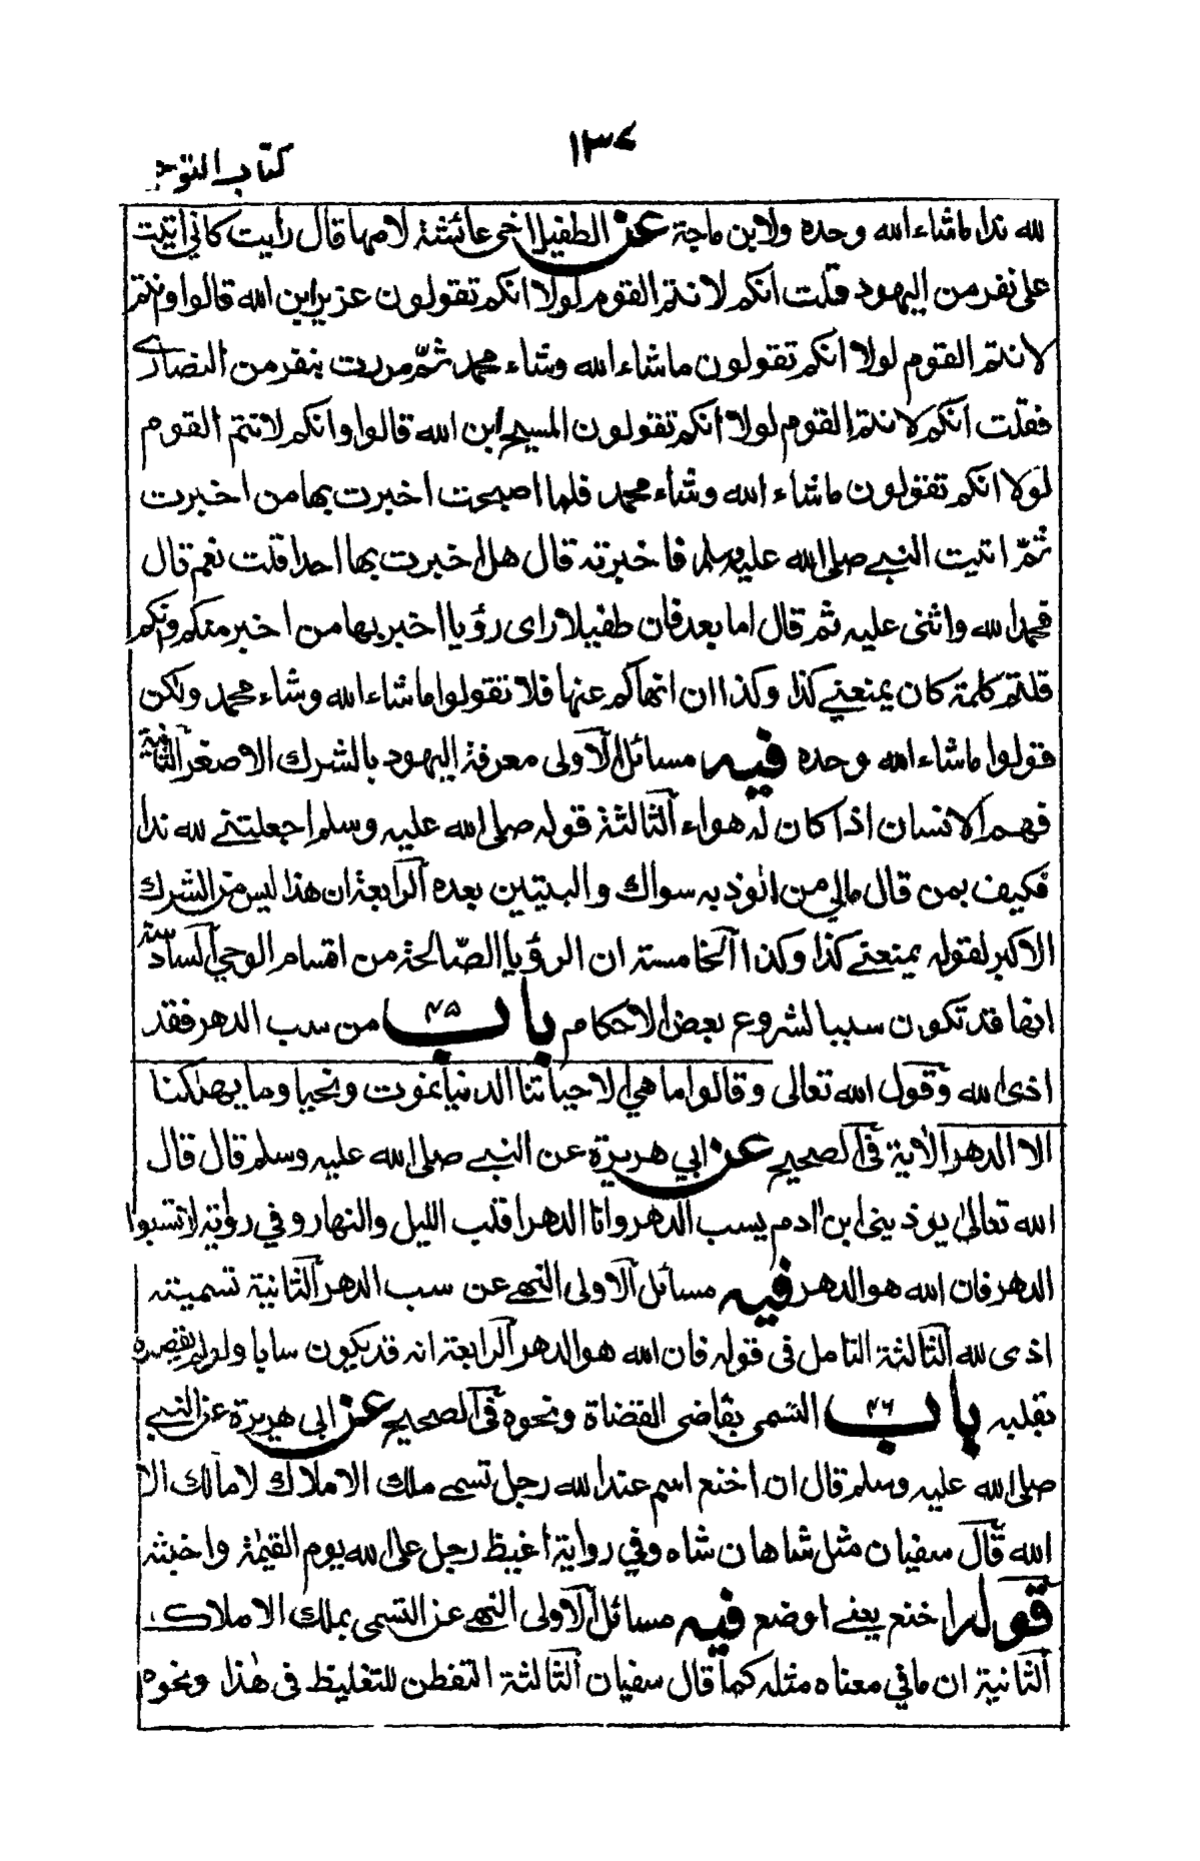 ١٣٧
كتاب التوح
لله ندا ما شاء الله وحده ولابن ماجة عن الطفيل اخى عائشة لامها قال رأيت كانى اتيت
على نفر من اليهود قلت انكم لانتم القوم لولا انكم تقولون عزير ابن الله قالوا وانتم
لانتم القوم لولا انكم تقولون ما شاء الله وشاء محمد ثمّ مررت بنفر من النصارى
فقلت انكم لانتم القوم لولا انكم تقولون المسيح ابن الله قالوا وانكم لانتم القوم
لولا انكم تقولون ما شاء الله وشاء محمد فلما اصبحت اخبرت بها من اخبرت
ثمّ اتيت النبي صلى الله عليه وسلم فاخبرته قال هل اخبرت بها احدا قلت نعم قال
فحمد الله واثنى عليه ثم قال اما بعد فان طفيلا راى رؤيا اخبر بها من اخبر منكم وانكم
قلتم كلمة كان يمنعني كذا وكذا ان انهاكم عنها فلا تقولوا ما شاء الله وشاء محمد ولكن
قولوا ما شاء الله وحده فيه مسائل الأولى معرفة اليهود بالشرك الاصغر الثانية
فهم الانسان اذا كان له هواء الثالثة قوله صلى الله عليه وسلم اجعلتني لله ندا
فكيف بمن قال مالي من الوذ به سواك والبيتين بعده الرابعة ان هذا ليس من الشرك
الاكبر لقوله يمنعني كذا وكذا الخامسة ان الرؤيا الصّالحة من اقسام الوحي السادسة
انها قد تكون سببا لشروع بعض الاحكام باب ٤٥ من سب الدهر فقد
اذى الله وقول الله تعالى وقالوا ما هي الا حياتنا الدنيا نموت ونحيا وما يهلكنا
الا الدهر الأية فى الصحيح عن ابي هريرة عن النبي صلى الله عليه وسلم قال قال
الله تعالى يوذيني ابن ادم يسب الدهر وانا الدهر اقلب الليل والنهار وفي رواية لا تسبوا
الدهر فان الله هو الدهر فيه مسائل الاولى النهي عن سب الدهر الثانية تسميته
اذى لله الثالثة التامل فى قوله فان الله هو الدهر الرابعة انه قد يكون سابا ولو لم يقصده
بقلبه باب ٤٦ التسمى بقاضى القضاة ونحوه فى الصحيح عن ابى هريرة عن النبي
صلى الله عليه وسلم قال ان اخنع اسم عند الله رجل تسمى ملك الاملاك لا مالك الا
الله قال سفيان مثل شاهان شاه وفي رواية اغيظ رجل على الله يوم القيمة واخبثه
قوله اخنع يعني اوضع فيه مسائل الأولى النهي عن التسمى بملك الاملاك
الثانية ان ما في معناه مثله كما قال سفيان الثالثة التفطن للتغليظ فى هذا ونحوه